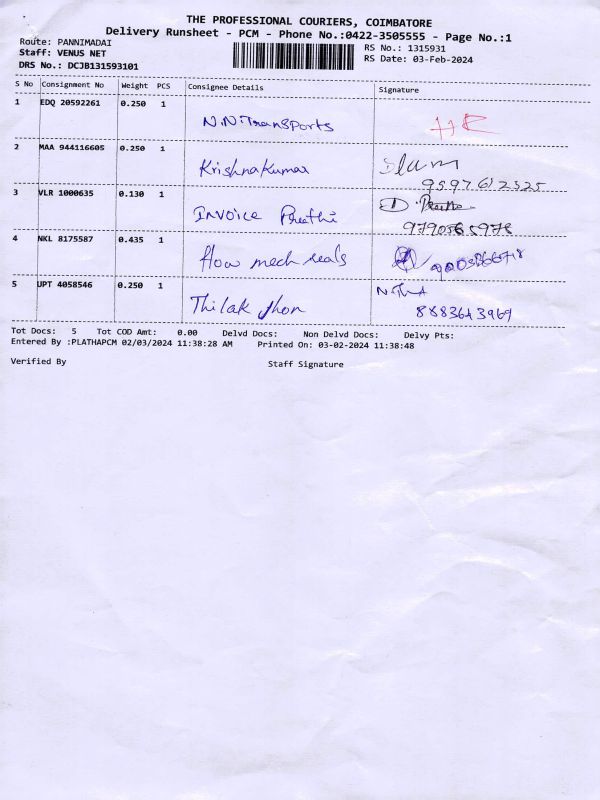 THE PROFESSIONAL COURIERS, COIMBATORE
Delivery Runsheet - PCM - Phone No.:0422-3505555 - Page No.:1
Route: PANNIMADAI
RS No.: 1315931
Staff: VENUS NET
RS Date: 03-Feb-2024
DRS No.: DCJB131593101
S No Consignment No Weight PCS Consignee Details Signature
1 EDQ 20592261 0.250 1
N.N.Transports
2 MAA 944116605 0.250 1
Krishnakumar
9597612525
3 VLR 1000635 0.130 1
Invoice Preethi
4 NKL 8175587 0.435 1
flow mech seals
5 UPT 4058546 0.250 1
Thilak Jhon
8883643969
Tot Docs: 5 Tot COD Amt: 0.00 Delvd Docs: Non Delvd Docs: Delvy Pts:
Entered By :PLATHAPCM 02/03/2024 11:38:28 AM Printed On: 03-02-2024 11:38:48
Verified By Staff Signature